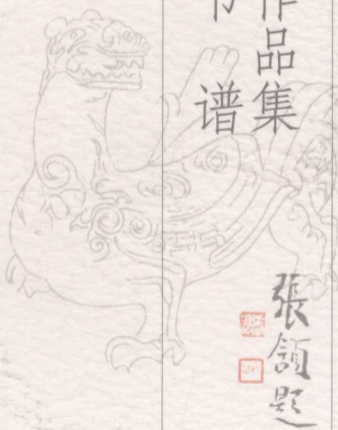 作品集
书谱
張頷題